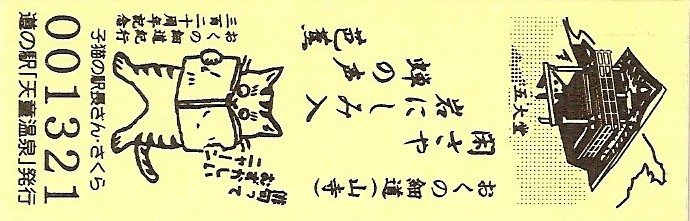 五大堂
おくの細道(山寺)
閑さや
岩にしみ入
蝉の声
芭蕉
俳句って
むずかしい
ニャー
おくの細道紀行
三百二十周年記念
子猫の駅長さん・さくら
001321
道の駅「天童温泉」発行